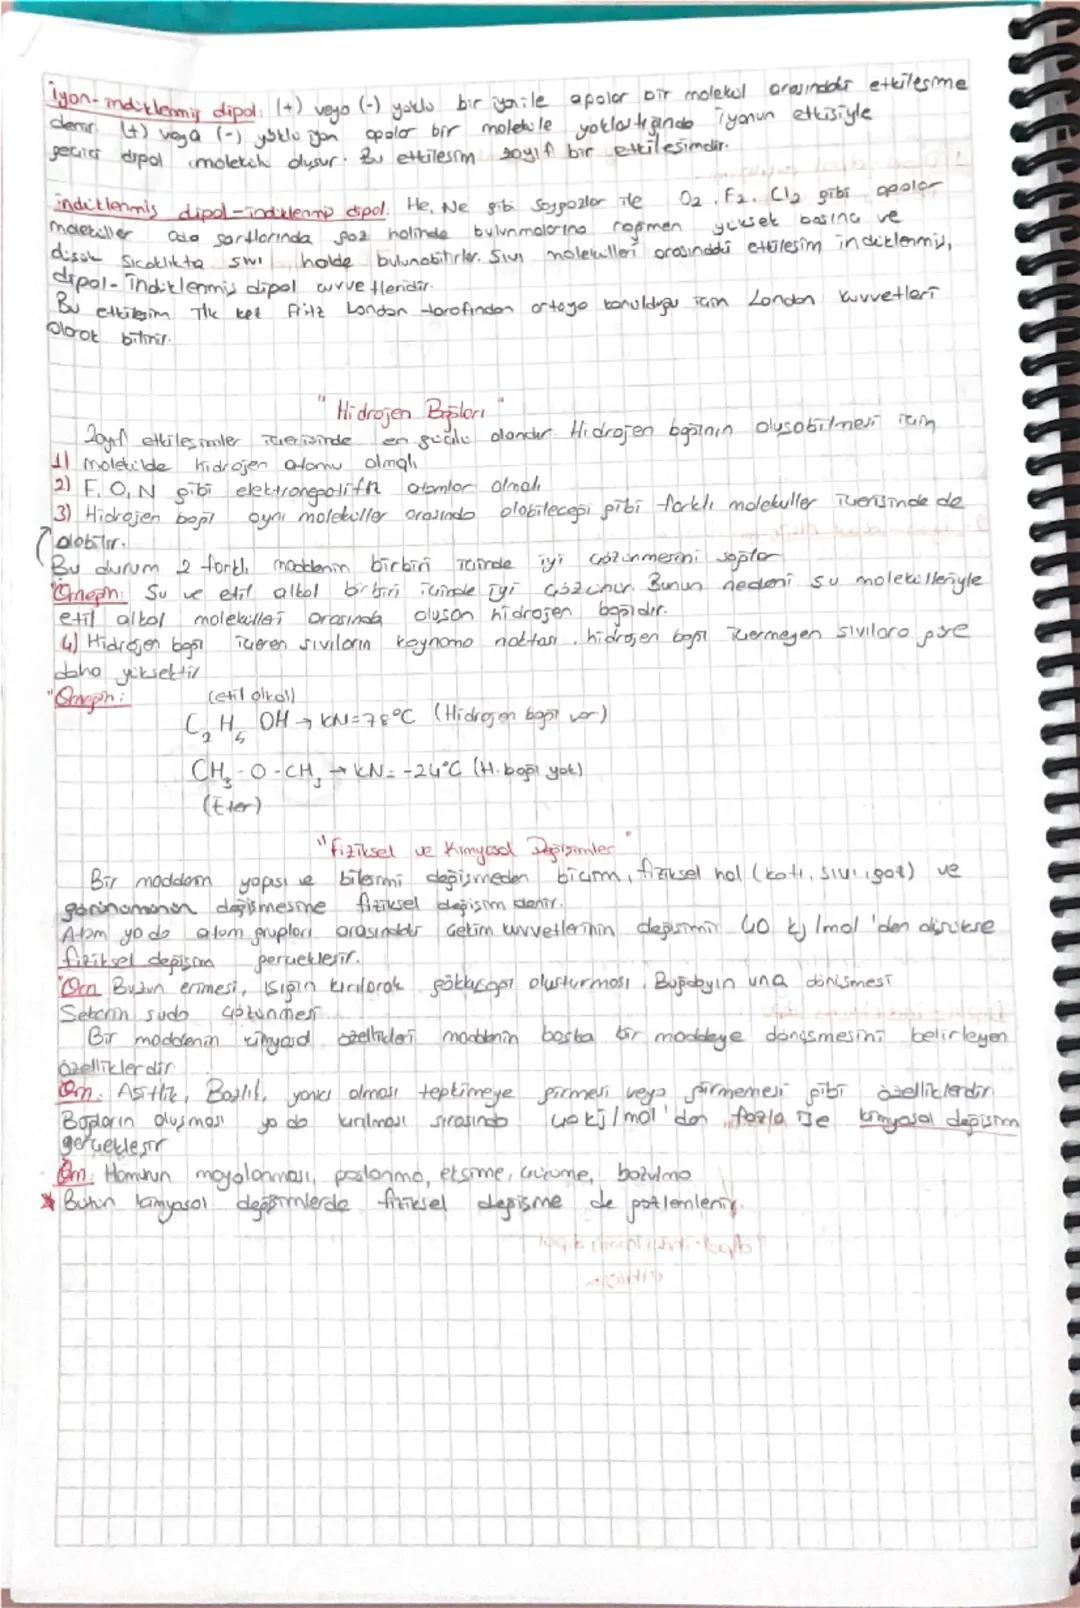 iyon-indüklenmiş dipol: (+) veya (-) yüklü bir iyon ile apolar bir molekül arasındaki etkileşime
denir. (+) veya (-) yüklü iyon apolar bir moleküle yaklaştığında iyonun etkisiyle
geçici dipol molekül oluşur. Bu etkileşim zayıf bir etkileşimdir.
indüklenmiş dipol-indüklenmiş dipol: He, Ne gibi soygazlar ile O2, F2, Cl2 gibi apolar
moleküller oda şartlarında gaz halinde bulunmalarına rağmen yüksek basınç ve
düşük sıcaklıkta sıvı halde bulunabilirler. Sıvı molekülleri arasındaki etkileşim indüklenmiş,
dipol-indüklenmiş dipol kuvvetleridir.
Bu etkileşim ilk kez Fritz London tarafından ortaya konulduğu için London kuvvetleri
olarak bilinir.
"Hidrojen Bağları"
Zayıf etkileşimler içerisinde en güçlü olandır. Hidrojen bağının oluşabilmesi için
1) Molekülde hidrojen atomu olmalı
2) F, O, N gibi elektronegatifliği atomlar olmalı
3) Hidrojen bağı aynı moleküller arasında olabileceği gibi farklı moleküller içerisinde de
olabilir.
Bu durum 2 farklı maddenin birbiri içinde iyi çözünmesini sağlar
"Örneğin: Su ve etil alkol birbiri içinde iyi çözünür. Bunun nedeni su molekülleriyle
etil alkol molekülleri arasında oluşan hidrojen bağıdır.
4) Hidrojen bağı içeren sıvıların kaynama noktası, hidrojen bağı içermeyen sıvılara göre
daha yüksektir
"Örneğin: (etil alkol)
C2H5OH → KN=78°C (Hidrojen bağı var)
CH3-O-CH3 → KN= -24°C (H. bağı yok)
(Eter)
"Fiziksel ve Kimyasal Değişimler"
Bir maddenin yapısı ve bileşimi değişmeden biçim, fiziksel hal (katı, sıvı, gaz) ve
görünümünün değişmesine fiziksel değişim denir.
Atom ya da atom grupları arasındaki çekim kuvvetlerinin değişimi 40 kj/mol 'den düşükse
fiziksel değişim gerçekleşir.
"Örn Buzun erimesi, ışığın kırılarak gökkuşağı oluşturması, Buğdayın una dönüşmesi
Şekerin suda çözünmesi
Bir maddenin kimyasal özellikleri maddenin başka bir maddeye dönüşmesini belirleyen
özelliklerdir
Örn: Asitlik, Bazlık, yanıcı olması tepkimeye girmesi veya girmemesi gibi özelliklerdir
Bağların oluşması ya da kırılması sırasında 40 kj/mol 'den fazla ise kimyasal değişim
gerçekleşir
Örn: Hamurun mayalanması, paslanma, ekşime, çürüme, bozulma
* Bütün kimyasal değişimlerde fiziksel değişme de gözlemlenir.